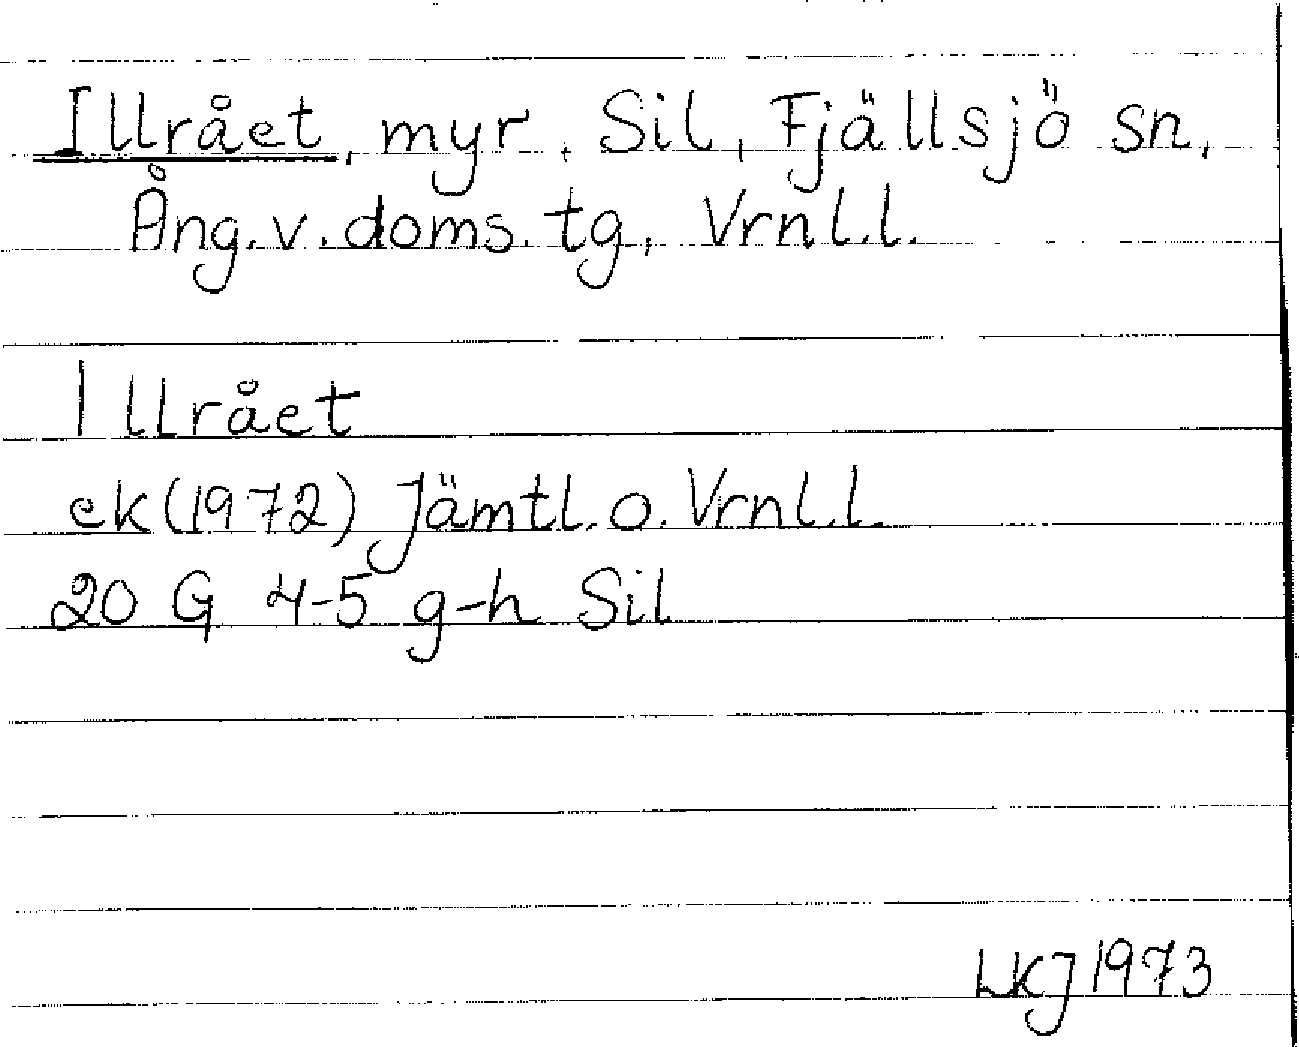 Illrået, myr, Sil, Fjällsjö sn,
Ång. v. doms. tg, Vrnl. l.
Illrået
ek (1972) Jämtl. o. Vrnl. l.
20 G 4-5 g-h Sil
LKJ 1973